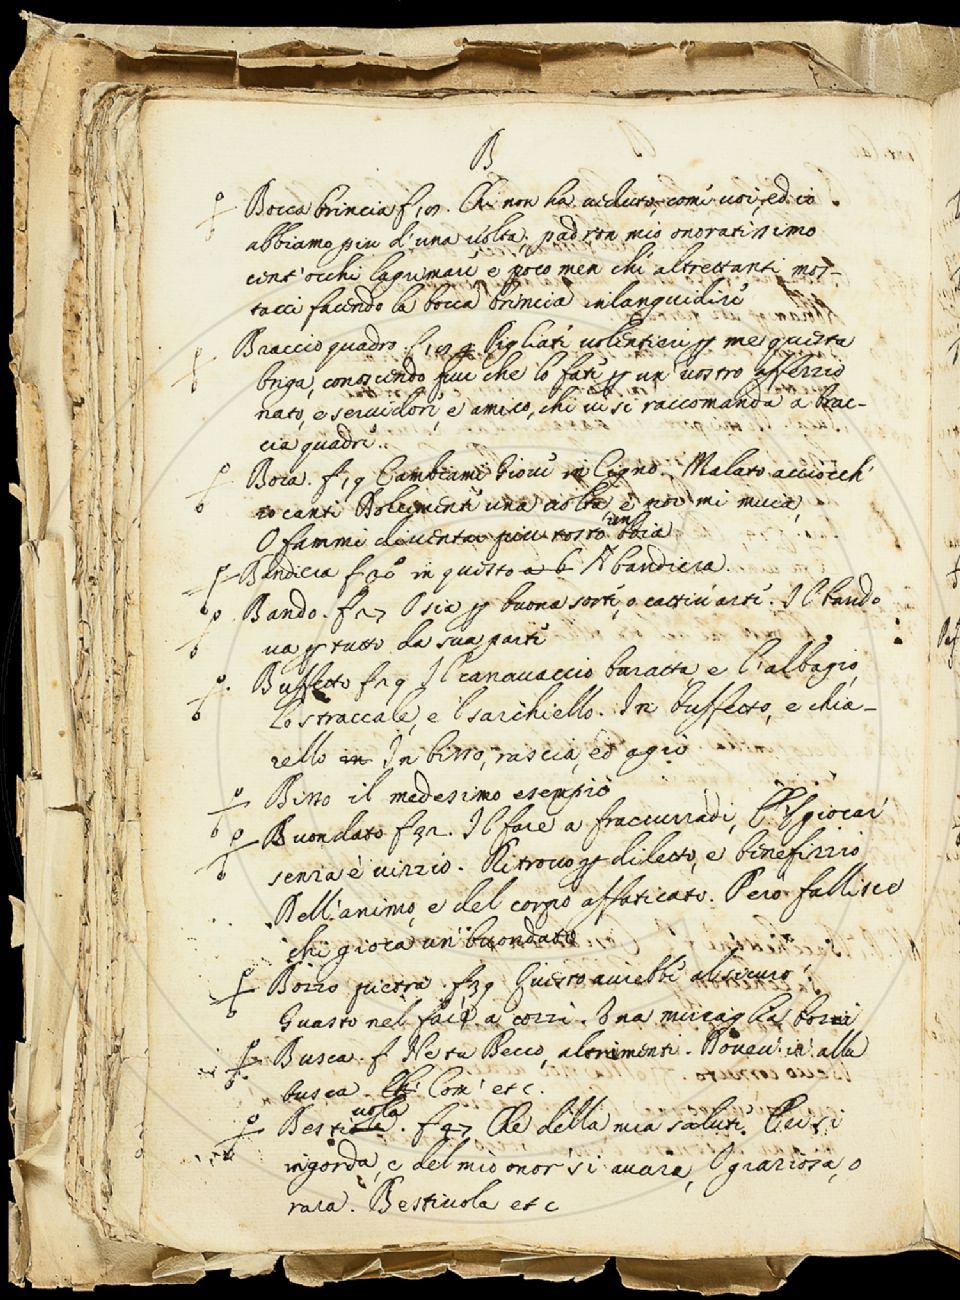 B
Bocca brincia f 19. Chi non ha veduto, com' voi, ed io
abbiamo piu d'una volta, padron mio onoratissimo
cent'occhi lagrimari e poco men chi altrettanti mos-
tacci facendo la bocca brincia inlanguidiri
Braccio quadro f 19 Pigliati volentieri p me questa
briga, conoscendo pur che lo fati p un vostro affezzio
nato, e servidori, e amico, chi vi si raccomanda a brac-
cia quadri.
Boia. f 19 Cambiami Giovi in Cigno. Malato acciocch'
io canti Dolcimenti una volta e poi mi muoia,
O fammi diventar piu tosto un boia
Bandiera f 20 in questo a b A bandiera.
Bando. f 27 O sia p buona sorti, o cattiv' arti. Il bando
va p tutto da sua parti
Buffetto f 29 Il canavaccio baratta e l'albagio,
Lo straccale, e 'l sarchiello. In buffetto, e chia-
rello in In bisso, rascia, ed agio
Bisso il medesimo esempio
Buondato f 32. Il fare a fraccurradi, E 'l giocar
senza è vizzio. Ritrovo p diletto, e binefizzio
Dell'animo, e del corpo affaticato. Pero fallisce
chi gioca un buondato
Bozzo pietra. f 39 Questo avrebbi al sicuro
Guasto nel fare a cozzi. Una muraglia bozzi
Busca. f Ne tu Becco, altrimenti. Dovevi ir alla
busca. Com' etc.
Bestivola. f 47 Che della mia saluti. Sei si
ingorda, e del mio onor' si avara, O graziosa, o
rara. Bestivola etc